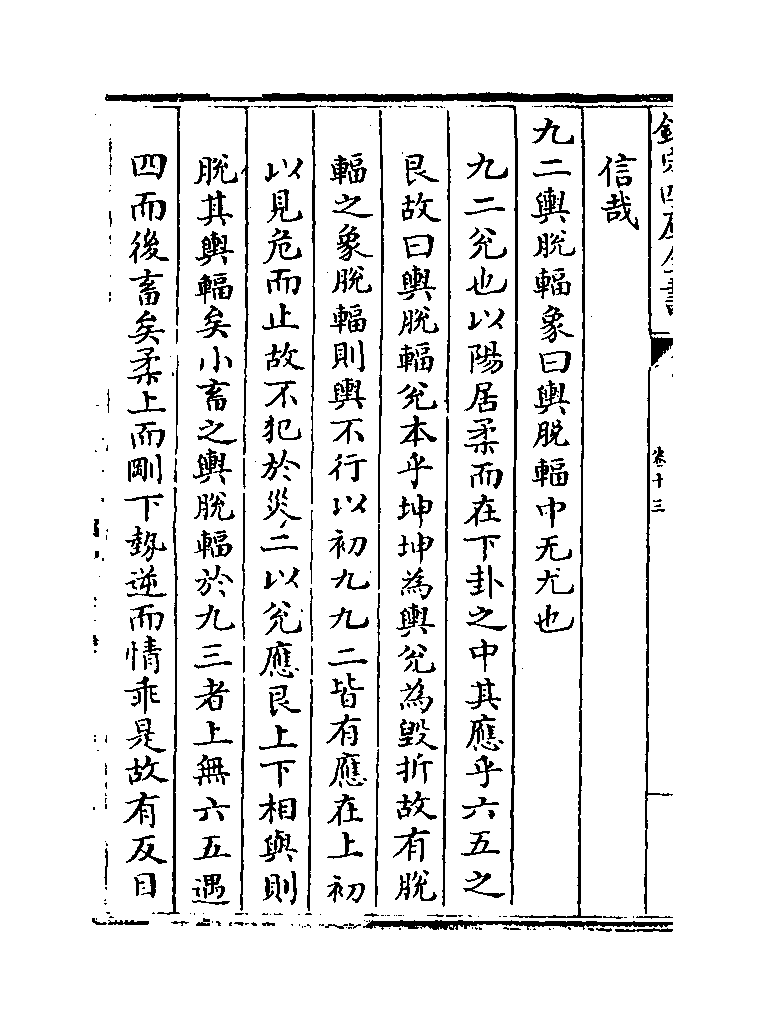 欽定四庫全書
卷十三
信哉
九二輿脫輻象曰輿脫輻中无尤也
九二兊也以陽居柔而在下卦之中其應乎六五之
艮故曰輿脫輻兊本乎坤坤為輿兊為毀折故有脫
輻之象脫輻則輿不行以初九九二皆有應在上初
以見危而止故不犯於災二以兊應艮上下相與則
脫其輿輻矣小畜之輿脫輻於九三者上無六五遇
四而後畜矣柔上而剛下勢逆而情乖是故有反目